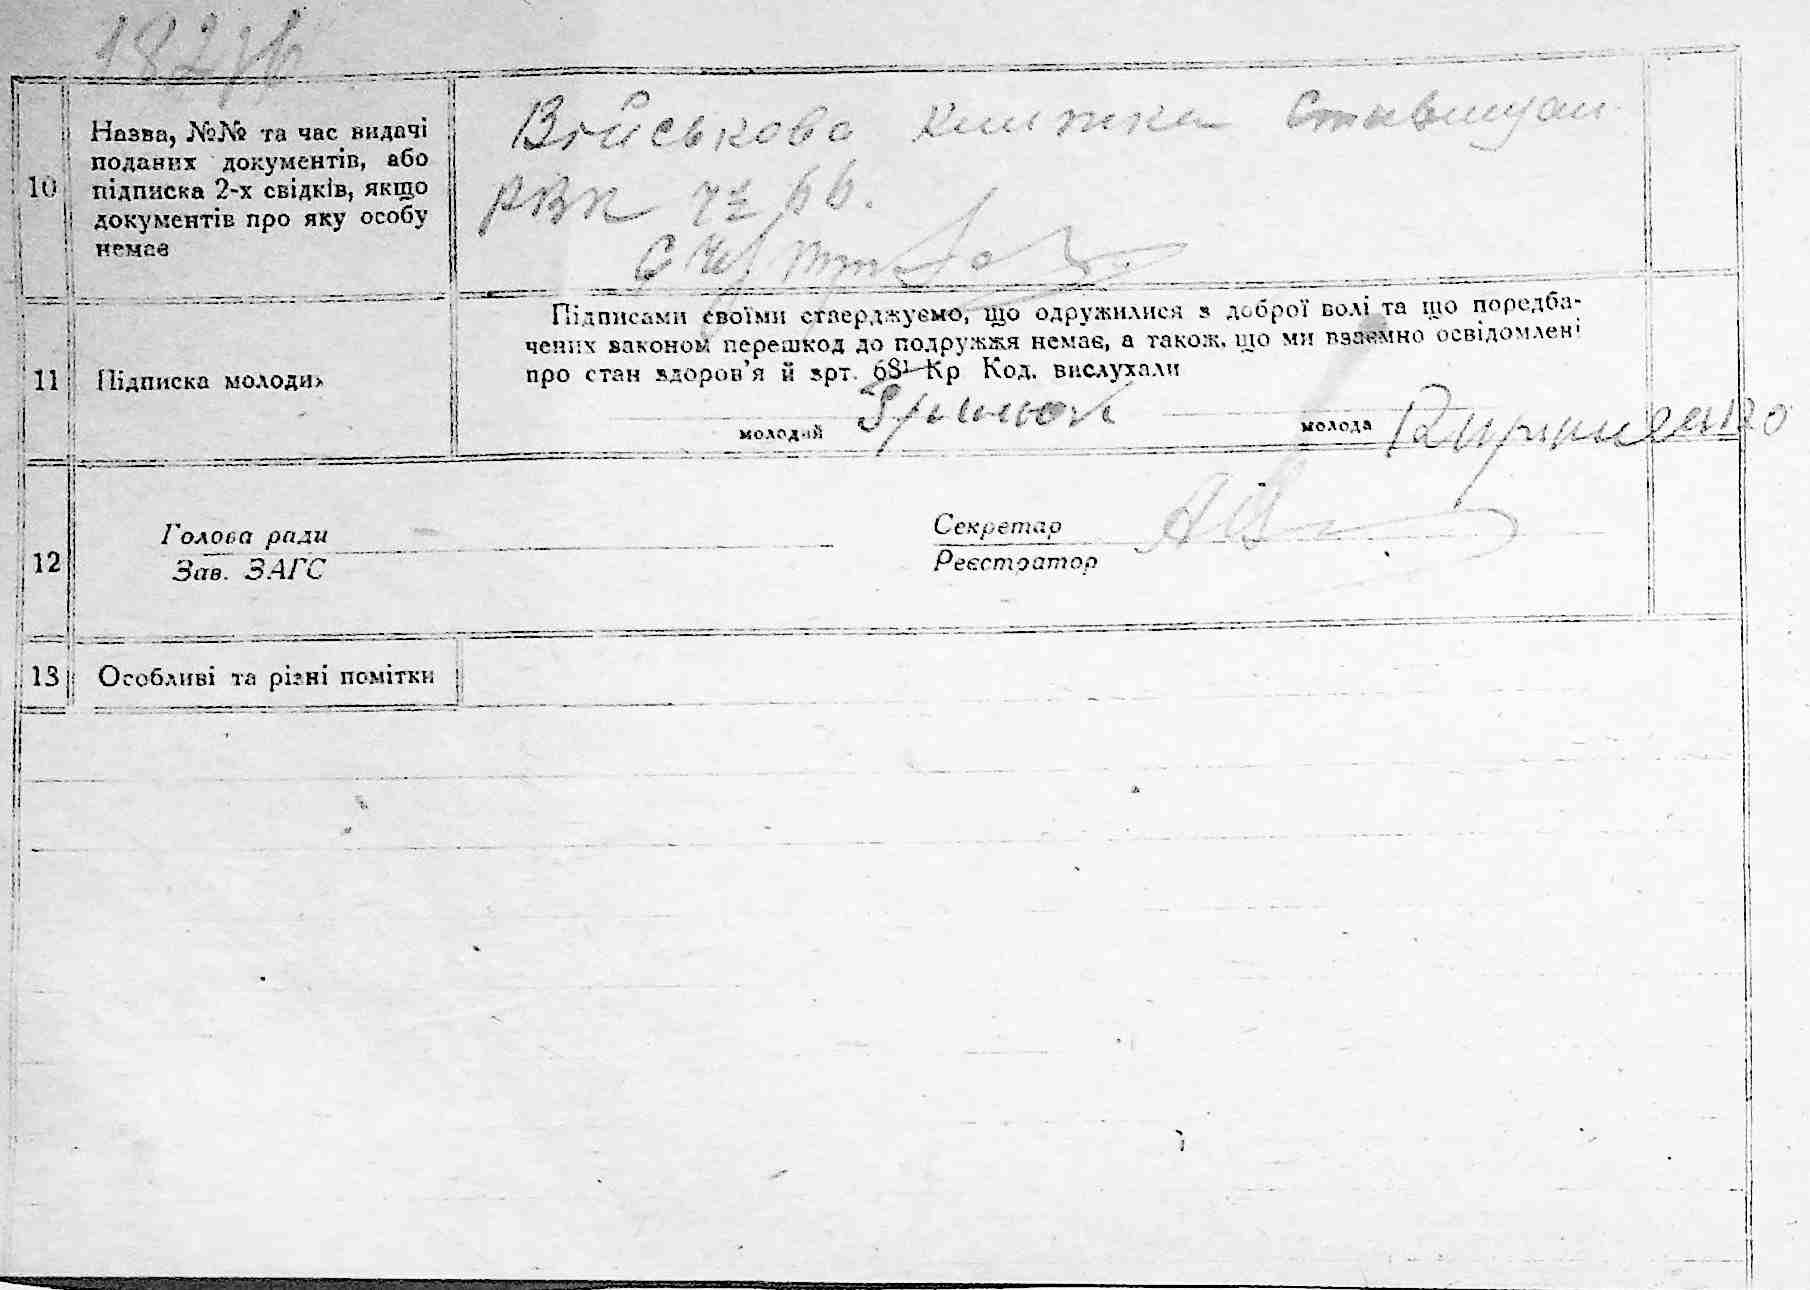 10
Назва, №№ та час видачі
поданих документів, або
підписка 2-х свідків, якщо
документів про яку особу
немає
Військова книжка
РВК
11
Підписка молодих
Підписами своїми стверджуємо, що одружилися з доброї волі та що передба-
чених законом перешкод до подружжя немає, а також, що ми взаємно освідомлені
про стан здоров’я й арт. 68¹ Кр Код. вислухали
молодий
молода Кириленко
12
Голова ради
Зав. ЗАГС
Секретар
Реєстратор
13
Особливі та різні помітки